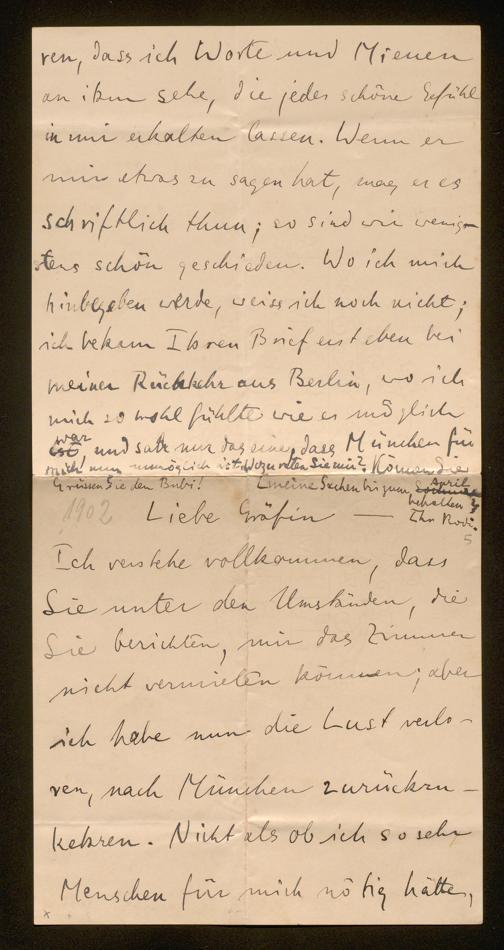 ren, dass ich Worte und Mienen
an ihm sehe, die jedes schöne Gefühl
in mir erkalten lassen. Wenn er
mir etwas zu sagen hat, mag er es
schriftlich thun; so sind wir wenig-
stens schön geschieden. Wo ich mich
hinbegeben werde, weiss ich noch nicht;
ich bekam Ihren Brief erst eben bei
meiner Rückkehr aus Berlin, wo ich
mich so wohl fühlte wie es möglich
ist war, und sah nur das eine, dass München für
mich nun unmöglich ist. Wozu raten Sie mir? Können Sie
Grüssen Sie den Bubi! meine Sachen bis zum April
behalten?
Ihr Rodi.
5
1902 Liebe Gräfin —
Ich verstehe vollkommen, dass
Sie unter den Umständen, die
Sie berichten, mir das Zimmer
nicht vermieten können; aber
ich habe nun die Lust verlo-
ren, nach München zurückzu-
kehren. Nicht als ob ich so sehr
Menschen für mich nötig hätte,
x